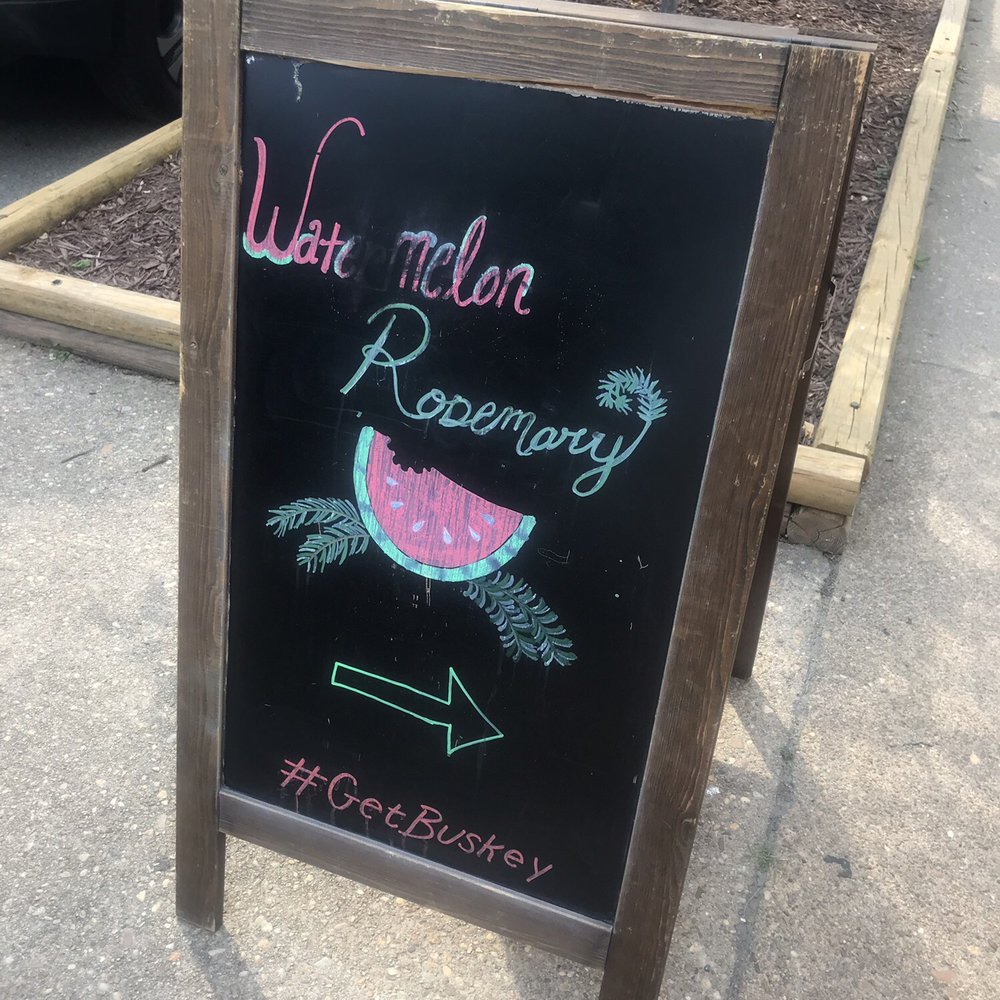 Watermelon
Rosemary
#GetBuskey